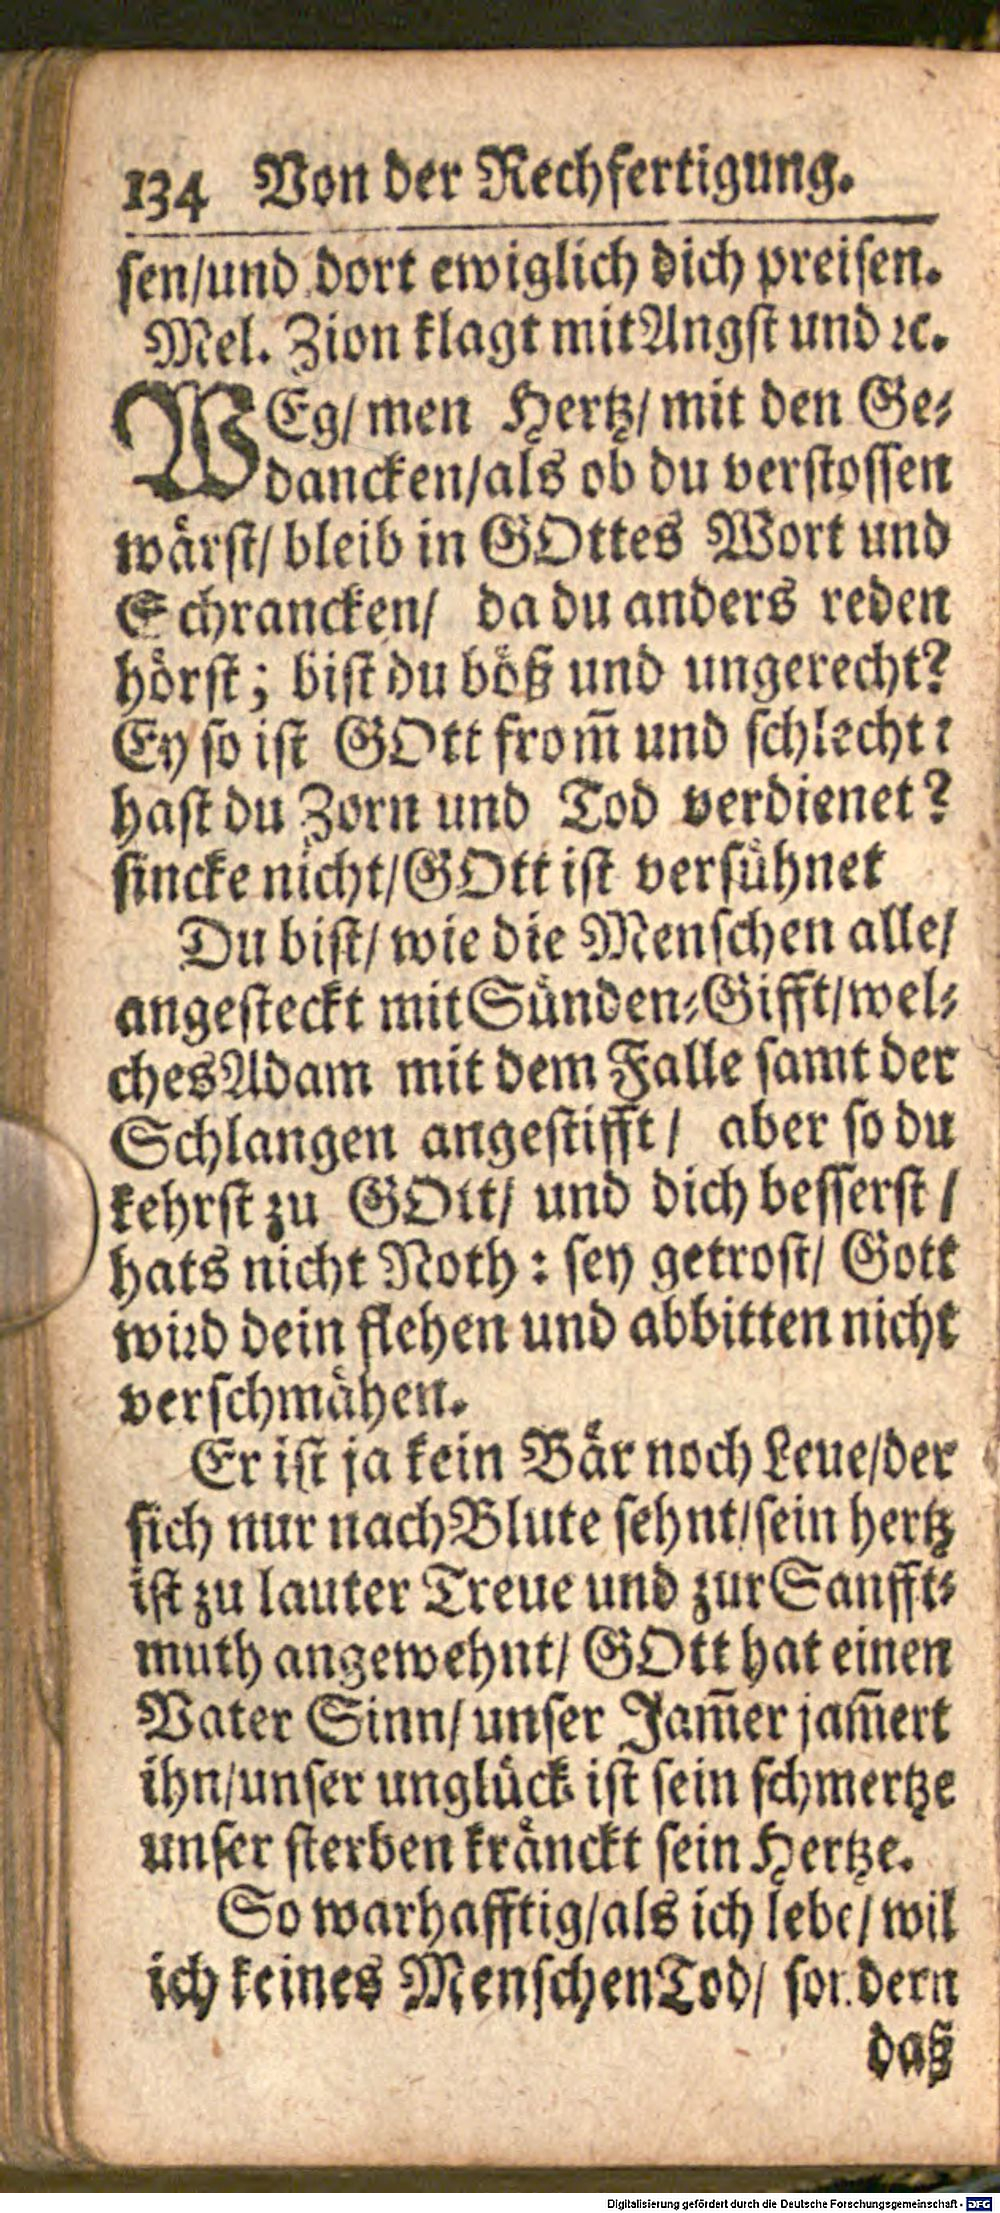 134 Von der Rechfertigung.
ſen/und dort ewiglich dich preiſen.
Mel. Zion klagt mit Angſt und ꝛc.
WEg/ men Hertz/ mit den Ge-
dancken/als ob du verſtoſſen
wårſt/ bleib in GOttes Wort und
Schrancken/ da du anders reden
hôrſt; biſt du bôß und ungerecht?
Ey ſo iſt GOtt from̃ und ſchlecht:
haſt du Zorn und Tod verdienet?
ſincke nicht/GOtt iſt verſůhnet
Du biſt/ wie die Menſchen alle/
angeſteckt mit Sůnden-Gifft/wel-
ches Adam mit dem Falle ſamt der
Schlangen angeſtifft/ aber ſo du
kehrſt zu GOtt/ und dich beſſerſt/
hats nicht Noth: ſey getroſt/ Gott
wird dein flehen und abbitten nicht
verſchmåhen.
Er iſt ja kein Bår noch Leue/der
ſich nur nach Blute ſehnt/ſein hertz
iſt zu lauter Treue und zur Sanfft-
muth angewehnt/ GOtt hat einen
Vater Sinn/ unſer Jam̃er jam̃ert
ihn/unſer unglůck iſt ſein ſchmertze
unſer ſterben krånckt ſein Hertze.
So warhafftig/als ich lebe/ wil
ich keines Menſchen Tod/ ſondern
daß
Digitalisierung gefördert durch die Deutsche Forschungsgemeinschaft - DFG